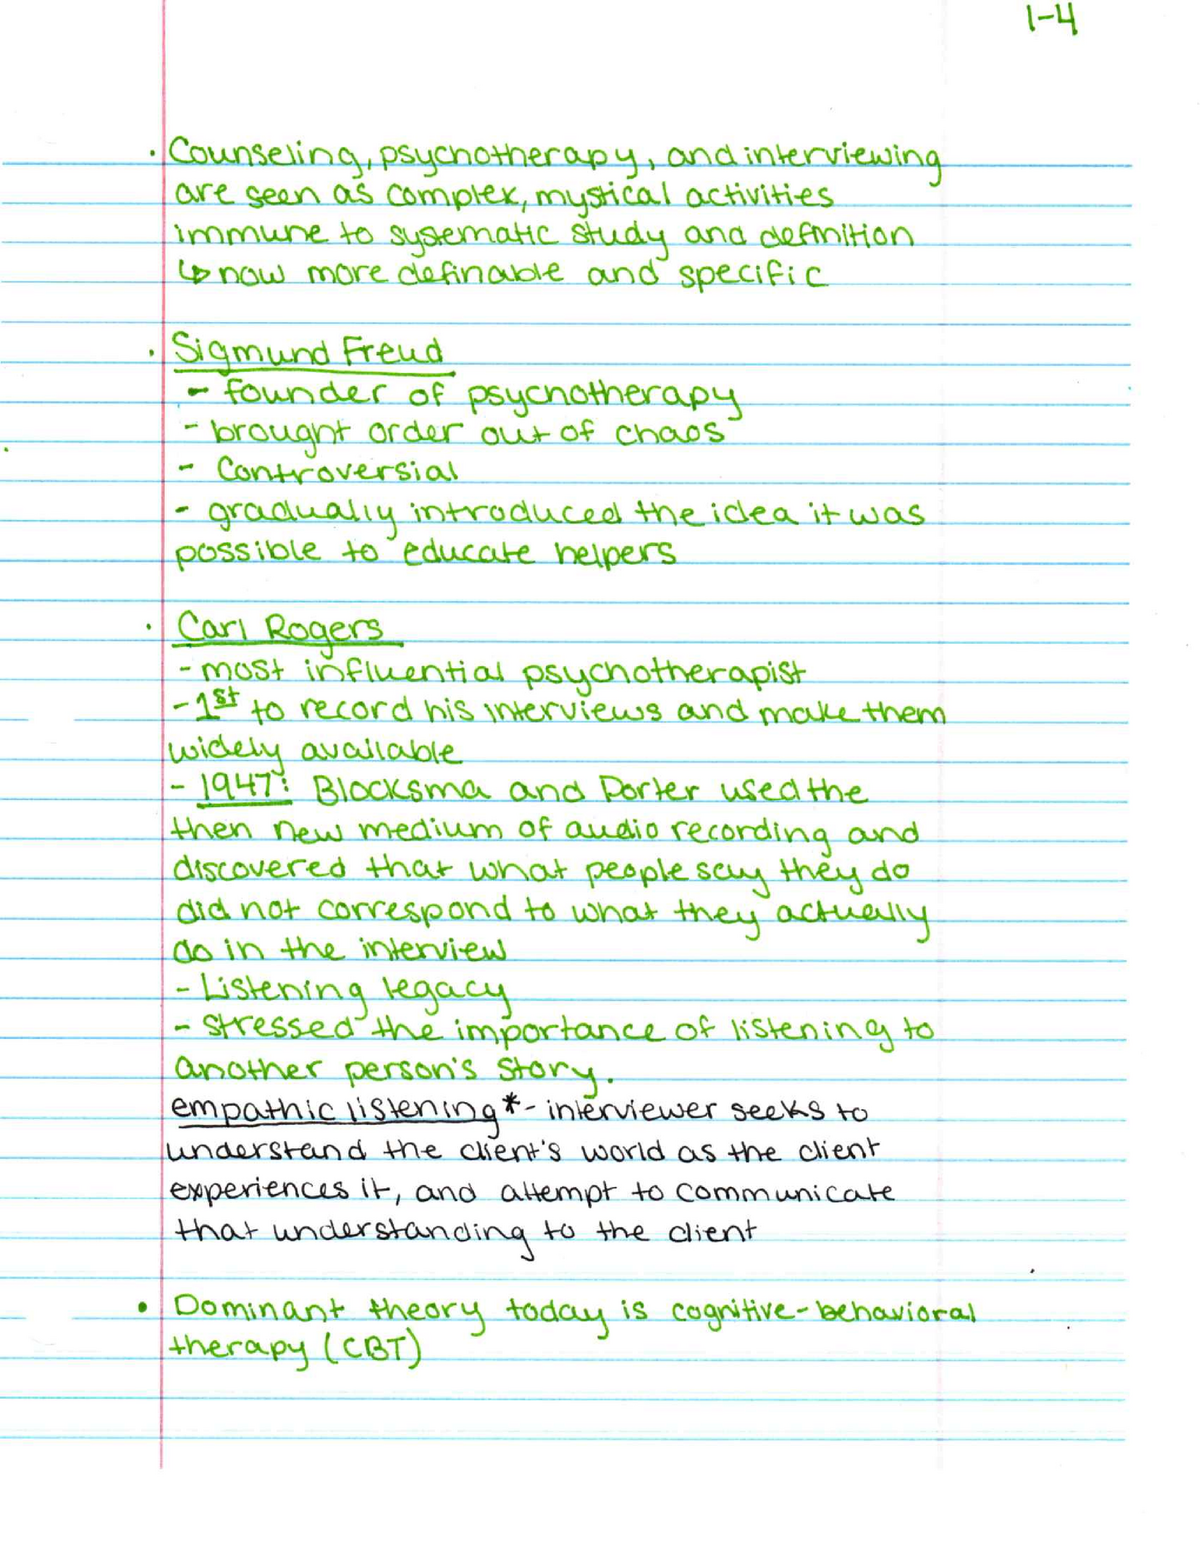 1-4
· Counseling, psychotherapy, and interviewing
are seen as complex, mystical activities
immune to systematic study and definition
↳ now more definable and specific
· Sigmund Freud
- founder of psychotherapy
- brought order out of chaos
- Controversial
- gradually introduced the idea it was
possible to educate helpers
· Carl Rogers
- most influential psychotherapist
- 1st to record his interviews and make them
widely available
- 1947: Blocksma and Porter used the
then new medium of audio recording and
discovered that what people say they do
did not correspond to what they actually
do in the interview
- Listening legacy
- stressed the importance of listening to
another person's story.
empathic listening* - interviewer seeks to
understand the client's world as the client
experiences it, and attempt to communicate
that understanding to the client
• Dominant theory today is cognitive-behavioral
therapy (CBT)